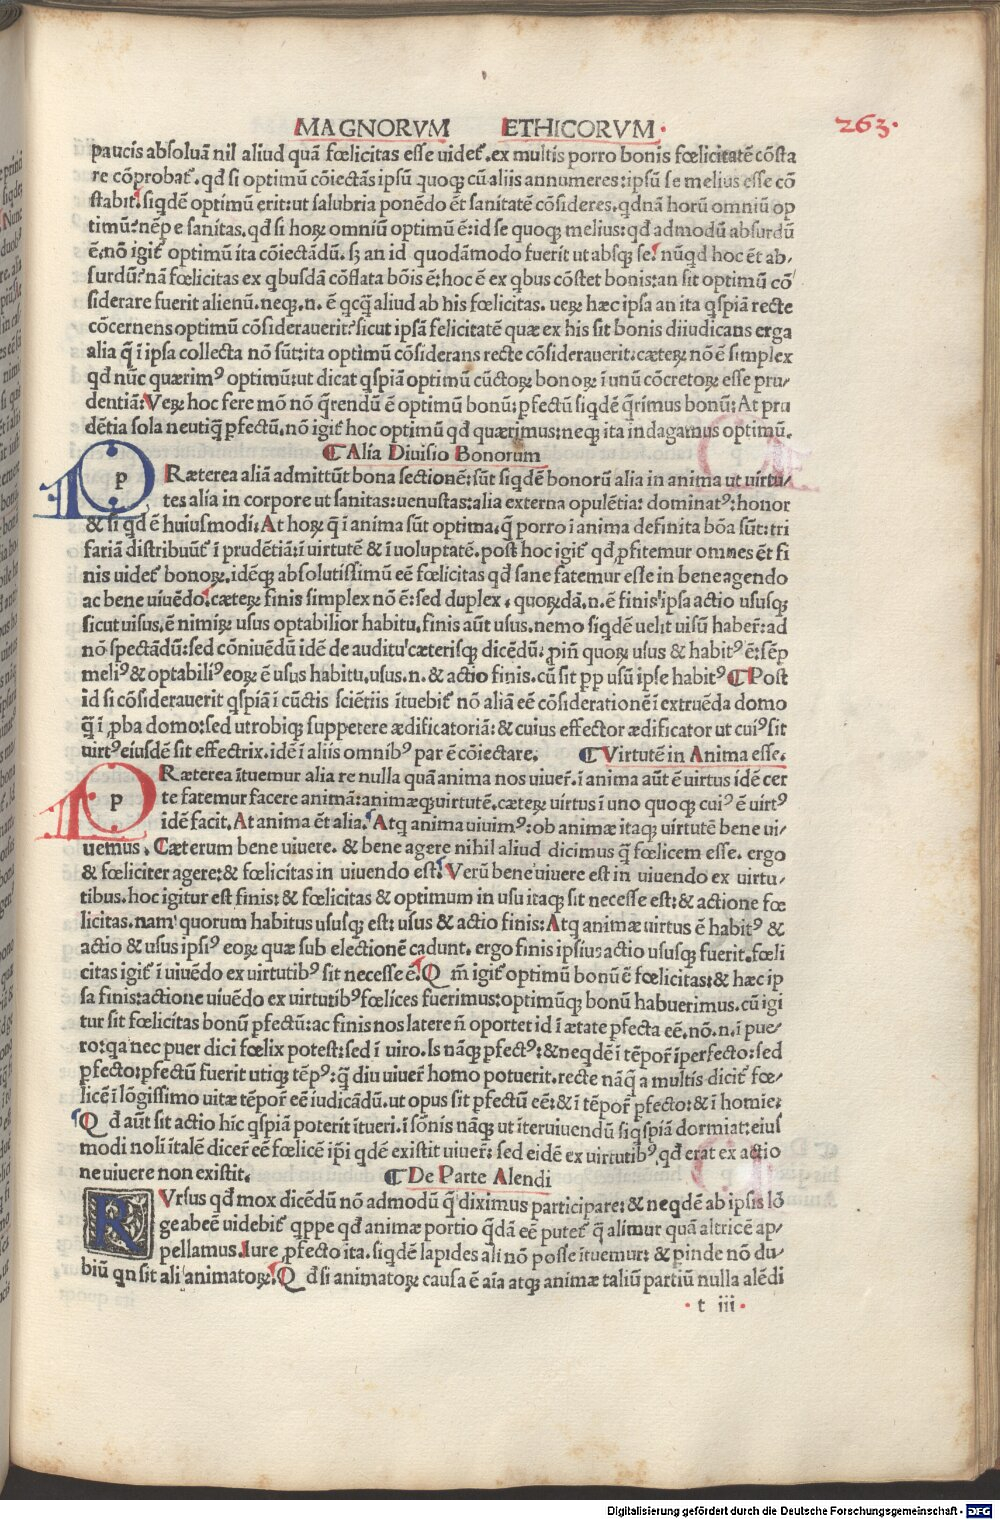 MAGNORVM ETHICORVM. 263.
paucis absoluã nil aliud quã fœlicitas esse uidet̃. ex multis porro bonis fœlicitatẽ cõsta
re cõprobat̃. qđ si optimũ cõiectãs ipsũ quoqꝫ cũ aliis annumeres: ipsũ se melius esse cõ
stabit. siqdẽ optimũ erit: ut salubria ponẽdo ẽt sanitatẽ cõsideres. qdnã horũ omniũ op
timũ? nẽpe sanitas. qđ si hoꝝ omniũ optimũ ẽ: id se quoqꝫ melius: qđ admodũ absurdũ
ẽ. nõ igit̃ optimũ ita cõiectãdũ. sꝫ an id quodãmodo fuerit ut absqꝫ se? nũqd hoc ẽt ab/
surdũ? nã fœlicitas ex qbusdã cõflata bõis ẽ: hoc ẽ ex qbus cõstet bonis: an sit optimũ cõ/
siderare fuerit alienũ. neqꝫ. n. ẽ qcq̃ aliud ab his fœlicitas. ueꝝ hæc ipsa an ita qspiã recte
cõcernens optimũ cõsiderauerit? sicut ipsã felicitatẽ quæ ex his sit bonis diiudicans erga
alia q̃ ĩ ipsa collecta nõ sũt: ita optimũ cõsiderans recte cõsiderauerit. cæteꝝ nõ ẽ simplex
qđ nũc quærimꝰ optimũ: ut dicat qspiã optimũ cũctoꝝ bonoꝝ ĩ unũ cõcretoꝝ esse pru/
dentiã: Veꝝ hoc fere mõ nõ q̃rendũ ẽ optimũ bonũ: ꝑfectũ siqdẽ q̃rimus bonũ: At pru
dẽtia sola neutiq̃ ꝑfectũ. nõ igit̃ hoc optimũ qđ quærimus: neqꝫ ita indagamus optimũ.
¶ Alia Diuisio Bonorum
p RÆterea aliã admittũt bona sectionẽ: sũt siqdẽ bonorũ alia in anima ut uirtu/
tes alia in corpore ut sanitas: uenustas: alia externa opulẽtia: dominatꝰ: honor
& si qđ ẽ huiusmodi. At hoꝝ q̃ ĩ anima sũt optima. q̃ porro ĩ anima definita bõa sũt: tri
fariã distribuũt̃ ĩ prudẽtiã: ĩ uirtutẽ & ĩ uoluptatẽ. post hoc igit̃ qđ ꝓfitemur omnes ẽt fi
nis uidet̃ bonoꝝ. idẽqꝫ absolutissimũ eẽ fœlicitas qđ sane fatemur esse in bene agendo
ac bene uiuẽdo. cæteꝝ finis simplex nõ ẽ: sed duplex. quoꝝdã. n. ẽ finis ipsa actio ususqꝫ
sicut uisus. ẽ nimiꝝ usus optabilior habitu. finis aũt usus. nemo siqdẽ uelit uisũ haber̃: ad
nõ spectãdũ: sed cõniuẽdũ idẽ de auditu cæterisqꝫ dicẽdũ. ꝓiñ quoꝝ usus & habitꝰ ẽ: sẽp
meliꝰ & optabiliꝰ eoꝝ ẽ usus habitu. usus. n. & actio finis. cũ sit ꝓpp usũ ipse habitꝰ ¶ Post
id si cõsiderauerit qspiã ĩ cũctis sciẽtiis ĩtuebit̃ nõ aliã eẽ cõsiderationẽ ĩ extruẽda domo
q̃ ĩ ꝓba domo: sed utrobiqꝫ suppetere ædificatoriã: & cuius effector ædificator ut cuiꝰ sit
uirtꝰ eiusdẽ sit effectrix. idẽ ĩ aliis omnibꝰ par ẽ cõiectare. ¶ Virtutẽ in Anima esse.
p RÆterea ĩtuemur alia re nulla quã anima nos uiuer̃. ĩ anima aũt ẽ uirtus idẽ cer
te fatemur facere animã: animæqꝫ uirtutẽ. cæteꝝ uirtus ĩ uno quoqꝫ cuiꝰ ẽ uirtꝰ
idẽ facit. At anima ẽt alia. Atq anima uiuimꝰ: ob animæ itaqꝫ uirtutẽ bene ui/
uemus. Cæterum bene uiuere. & bene agere nihil aliud dicimus q̃ fœlicem esse. ergo
& fœliciter agere: & fœlicitas in uiuendo est. Verũ bene uiuere est in uiuendo ex uirtu/
tibus. hoc igitur est finis: & fœlicitas & optimum in usu itaqꝫ sit necesse est: & actione fœ
licitas. nam quorum habitus ususqꝫ est: usus & actio finis: Atq animæ uirtus ẽ habitꝰ &
actio & usus ipsiꝰ eoꝝ quæ sub electionẽ cadunt. ergo finis ipsius actio ususqꝫ fuerit. fœli
citas igit̃ ĩ uiuẽdo ex uirtutibꝰ sit necesse ẽ. Qm̃ igit̃ optimũ bonũ ẽ fœlicitas: & hæc ip
sa finis: actione uiuẽdo ex uirtutibꝰ fœlices fuerimus: optimũqꝫ bonũ habuerimus. cũ igi
tur sit fœlicitas bonũ ꝑfectũ: ac finis nos latere ñ oportet id ĩ ætate ꝑfecta eẽ. nõ. n. ĩ pue/
ro: qa nec puer dici fœlix potest: sed ĩ uiro. Is nãqꝫ ꝑfectꝰ: & neqdẽ ĩ tẽpor̃ ĩperfecto: sed
ꝑfecto: ꝑfectũ fuerit utiqꝫ tẽpꝰ: q̃ diu uiuer̃ homo potuerit. recte nãq̃ a multis dicit̃ fœ/
licẽ ĩ lõgissimo uitæ tẽpor̃ eẽ iudicãdũ. ut opus sit ꝑfectũ eẽ: & ĩ tẽpor̃ ꝑfecto: & ĩ homĩe:
Qđ aũt sit actio hĩc qspiã poterit ĩtueri. ĩ sõnis nãqꝫ ut ĩteruiuendũ siqspiã dormiat: eius
modi noli ĩtalẽ dicer̃ eẽ fœlicẽ ĩp̃i qdẽ existit uiuer̃: sed eidẽ ex uirtutibꝰ. qđ erat ex actio
ne uiuere non existit. ¶ De Parte Alendi
R Vrsus qđ mox dicẽdũ nõ admodũ q̃ diximus participare: & neqdẽ ab ipsis lõ
ge abeẽ uidebit̃ qppe qđ animæ portio q̃dã eẽ putet̃ q̃ alimur quã altricẽ ap/
pellamus. Iure ꝓfecto ita. siqdẽ lapides ali nõ posse ĩtuemur: & ꝓinde nõ du/
biũ qn sit ali animatoꝝ. Qđ si animatoꝝ causa ẽ aĩa atqꝫ animæ taliũ partiũ nulla alẽdi
. t iii .
Digitalisierung gefördert durch die Deutsche Forschungsgemeinschaft - DFG